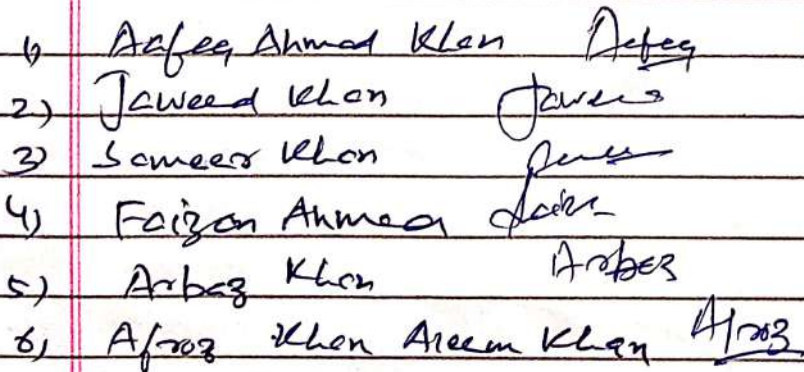 1) Aafeeq Ahmad Khan Aafeeq
2) Jaweed Khan Jaweed
3) Sameer Khan
4) Faizan Ahmed
5) Arbaz Khan Arbaz
6) Afroz Khan Aleem Khan Afroz